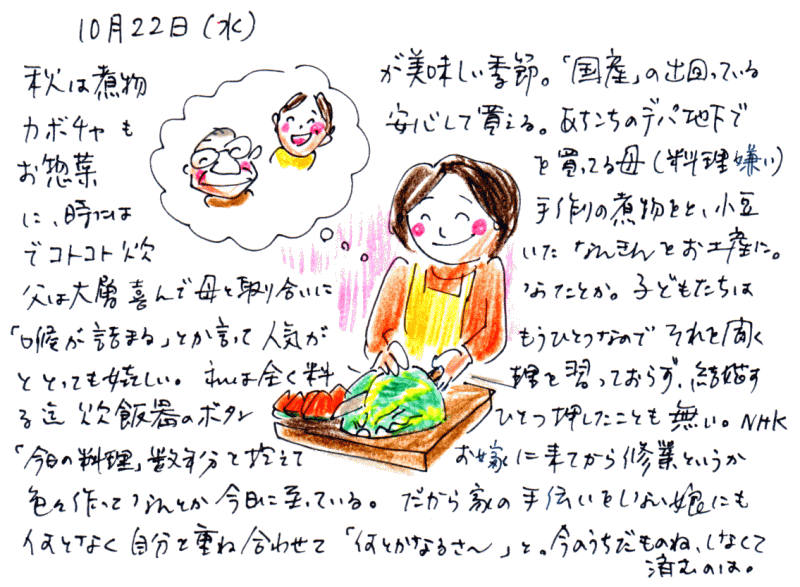 10月22日(水)
秋は煮物が美味しい季節。「国産」の出回っている
カボチャも安心して買える。あちこちのデパ地下で
お惣菜を買ってる母(料理嫌い)
に、時には手作りの煮物をと、小豆
でコトコト炊いたなんきんをお土産に。
父は大層喜んで母と取り合いになったとか。子どもたちは
「喉が詰まる」とか言って人気がもうひとつなのでそれを聞く
ととっても嬉しい。私は全く料理を習っておらず、結婚す
る迄炊飯器のボタンひとつ押したことも無い。NHK
「今日の料理」数年分を抱えてお嫁に来てから修業というか
色々作ってなんとか今日に至っている。だから家の手伝いをしない娘にも
何となく自分を重ね合わせて「何とかなるさ〜」と。今のうちだものね、しなくて
済むのは。